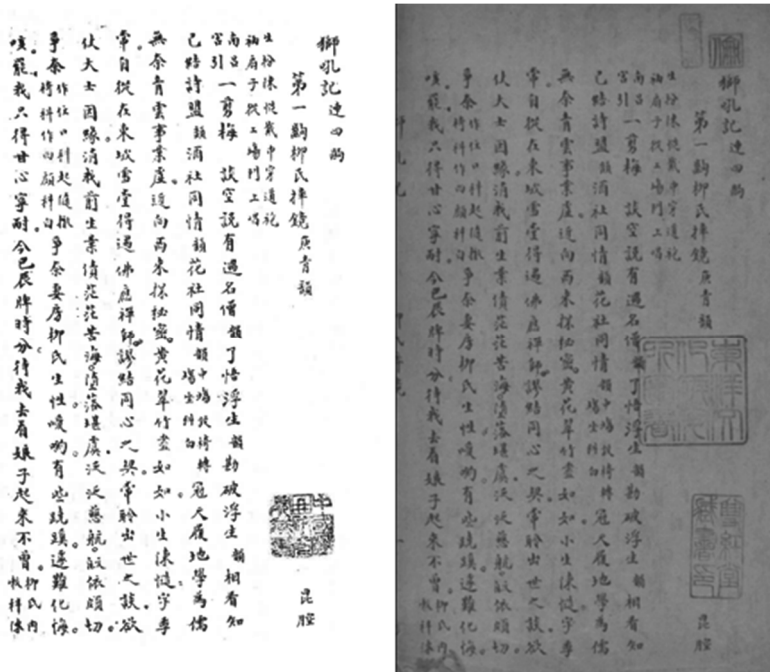 獅吼記連四齣
第一齣柳氏摔鏡庚青韻 昆腔
生扮陳慥戴巾穿道袍
袖扇子從上場門上唱
南呂宮引一剪梅 談空說有遇名僧韻了悟浮生韻勘破浮生韻相看知
己結詩盟韻酒社同情韻花社同情韻中場設椅轉場坐科白冠天履地學為儒
無奈青雲事業虛。近向西來探秘密。黃花翠竹盡如如小生陳慥字季
常自從在東坡雪堂得遇佛應禪師。謬結同心之契。常聆出世之談。欲
仗大士因緣消我前生業債。茫茫苦海。墮落堪虞。泛泛慈航。皈依頗切。
爭奈作住口科起隨撤椅科作向顧科白爭奈妻房柳氏生性嗳喲有些蹺蹊。遽難化悔。
咳罷我只得甘心寧耐今已辰牌時分待我去看娘子起來不曾。柳氏內
獅吼記連四齣
第一齣柳氏摔鏡庚青韻 昆腔
生扮陳慥戴巾穿道袍
袖扇子從上場門上唱
南呂宮引一剪梅 談空說有遇名僧韻了悟浮生韻勘破浮生韻相看知
己結詩盟韻酒社同情韻花社同情韻中場設椅轉場坐科白冠天履地學為儒
無奈青雲事業虛。近向西來探秘密。黃花翠竹盡如如小生陳慥字季
常自從在東坡雪堂得遇佛應禪師。謬結同心之契。常聆出世之談。欲
仗大士因緣消我前生業債。茫茫苦海。墮落堪虞。泛泛慈航。皈依頗切。
爭奈作住口科起隨撤椅科作向顧科白爭奈妻房柳氏生性嗳喲有些蹺蹊。遽難化悔。
咳罷我只得甘心寧耐今已辰牌時分待我去看娘子起來不曾。柳氏內
東洋文
化研究
雙紅堂
藏書印